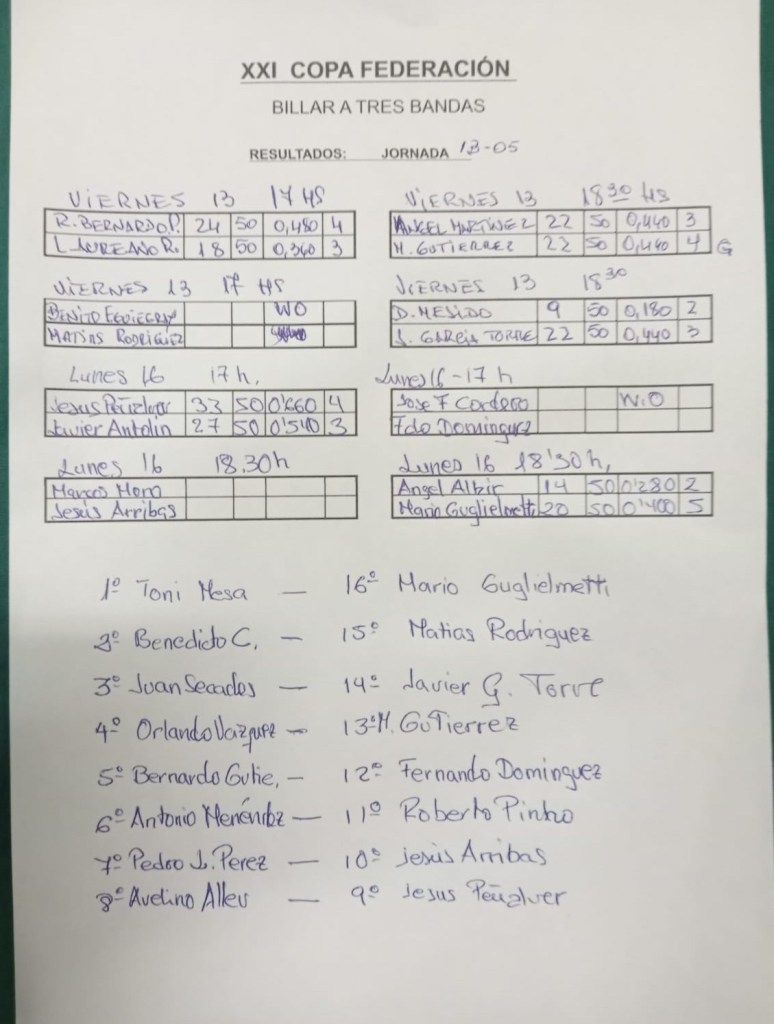 XXI COPA FEDERACIÓN
BILLAR A TRES BANDAS
RESULTADOS: JORNADA 13-05
VIERNES 13 17 HS
R. BERNARDO P. 24 50 0,480 4
L. AUREANO R. 18 50 0,360 3
VIERNES 13 18 30 HS
ANGEL MARTINEZ 22 50 0,440 3
M. GUTIERREZ 22 50 0,440 4 G
VIERNES 13 17 HS
BENITO WO
MATIAS RODRIGUEZ
VIERNES 13 18 30
D. MESIDO 9 50 0,180 2
J. GARCIA TORRE 22 50 0,440 3
Lunes 16 17 h,
Jesus Peñalver 33 50 0'660 4
Javier Antolin 27 50 0'540 3
Lunes 16 - 17 h
Jose F Cordero W.O
Fdo Dominguez
Lunes 16 18.30h
Marcos Moro
Jesús Arribas
Lunes 16 18'30h,
Angel Albir 14 50 0'280 2
Mario Guglielmetti 20 50 0'400 5
1º Toni Mesa — 16º Mario Guglielmetti
2º Benedicto C. — 15º Matias Rodriguez
3º Juan Secades — 14º Javier G. Torre
4º Orlando Vazquez — 13º M. GuTierrez
5º Bernardo Gutie, — 12º Fernando Dominguez
6º Antonio Menéndez — 11º Roberto Pinho
7º Pedro J. Perez — 10º Jesús Arribas
8º Avelino Alleu — 9º Jesus Peñalver